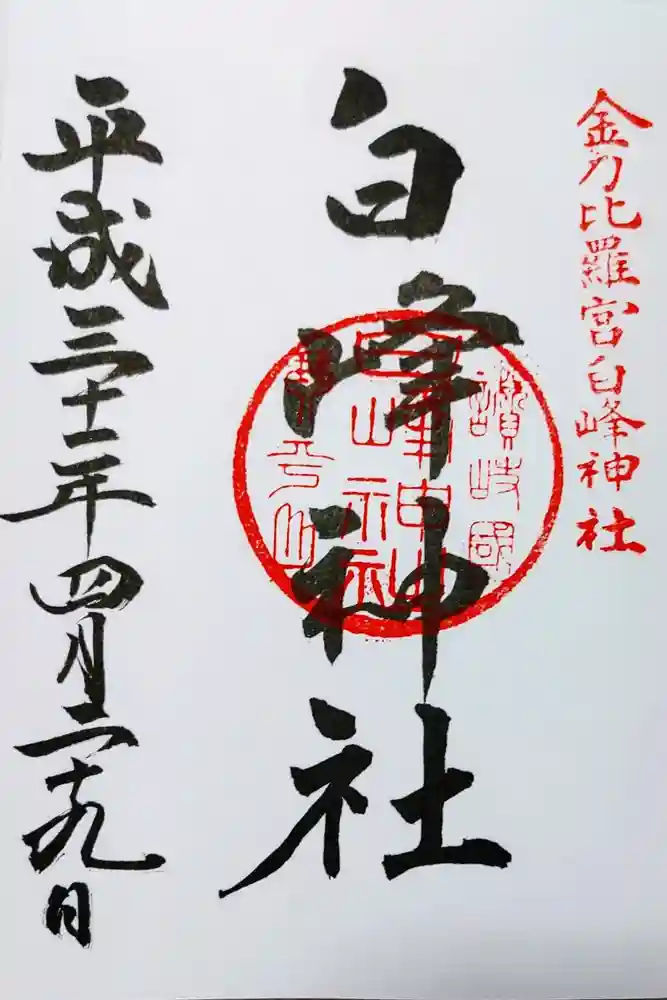 金刀比羅宮白峰神社
白峰神社
讃岐國
白峰神社
平成三十一年四月二十九日